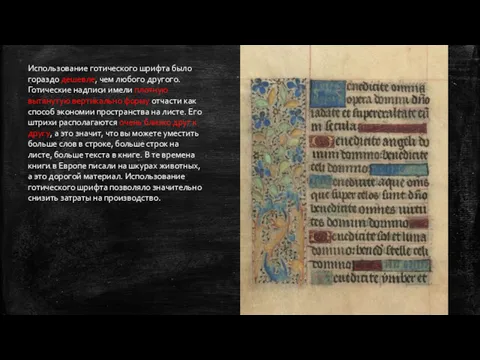 Использование готического шрифта было
гораздо дешевле, чем любого другого.
Готические надписи имели плотную
вытянутую вертикально форму отчасти как
способ экономии пространства на листе. Его
штрихи располагаются очень близко друг к
другу, а это значит, что вы можете уместить
больше слов в строке, больше строк на
листе, больше текста в книге. В те времена
книги в Европе писали на шкурах животных,
а это дорогой материал. Использование
готического шрифта позволяло значительно
снизить затраты на производство.
enedicite omnia
opera domini dño
ladate et superexaltate eū
in secula
enedicite angeli do
mini domino: benedicite
celi domino
enedicite aque omes
que super celos sunt dño
benedicite omnes virtu
tes domini domino
enedicite sol et luna
domino: bened stelle celi
domino
enedicite ymber et